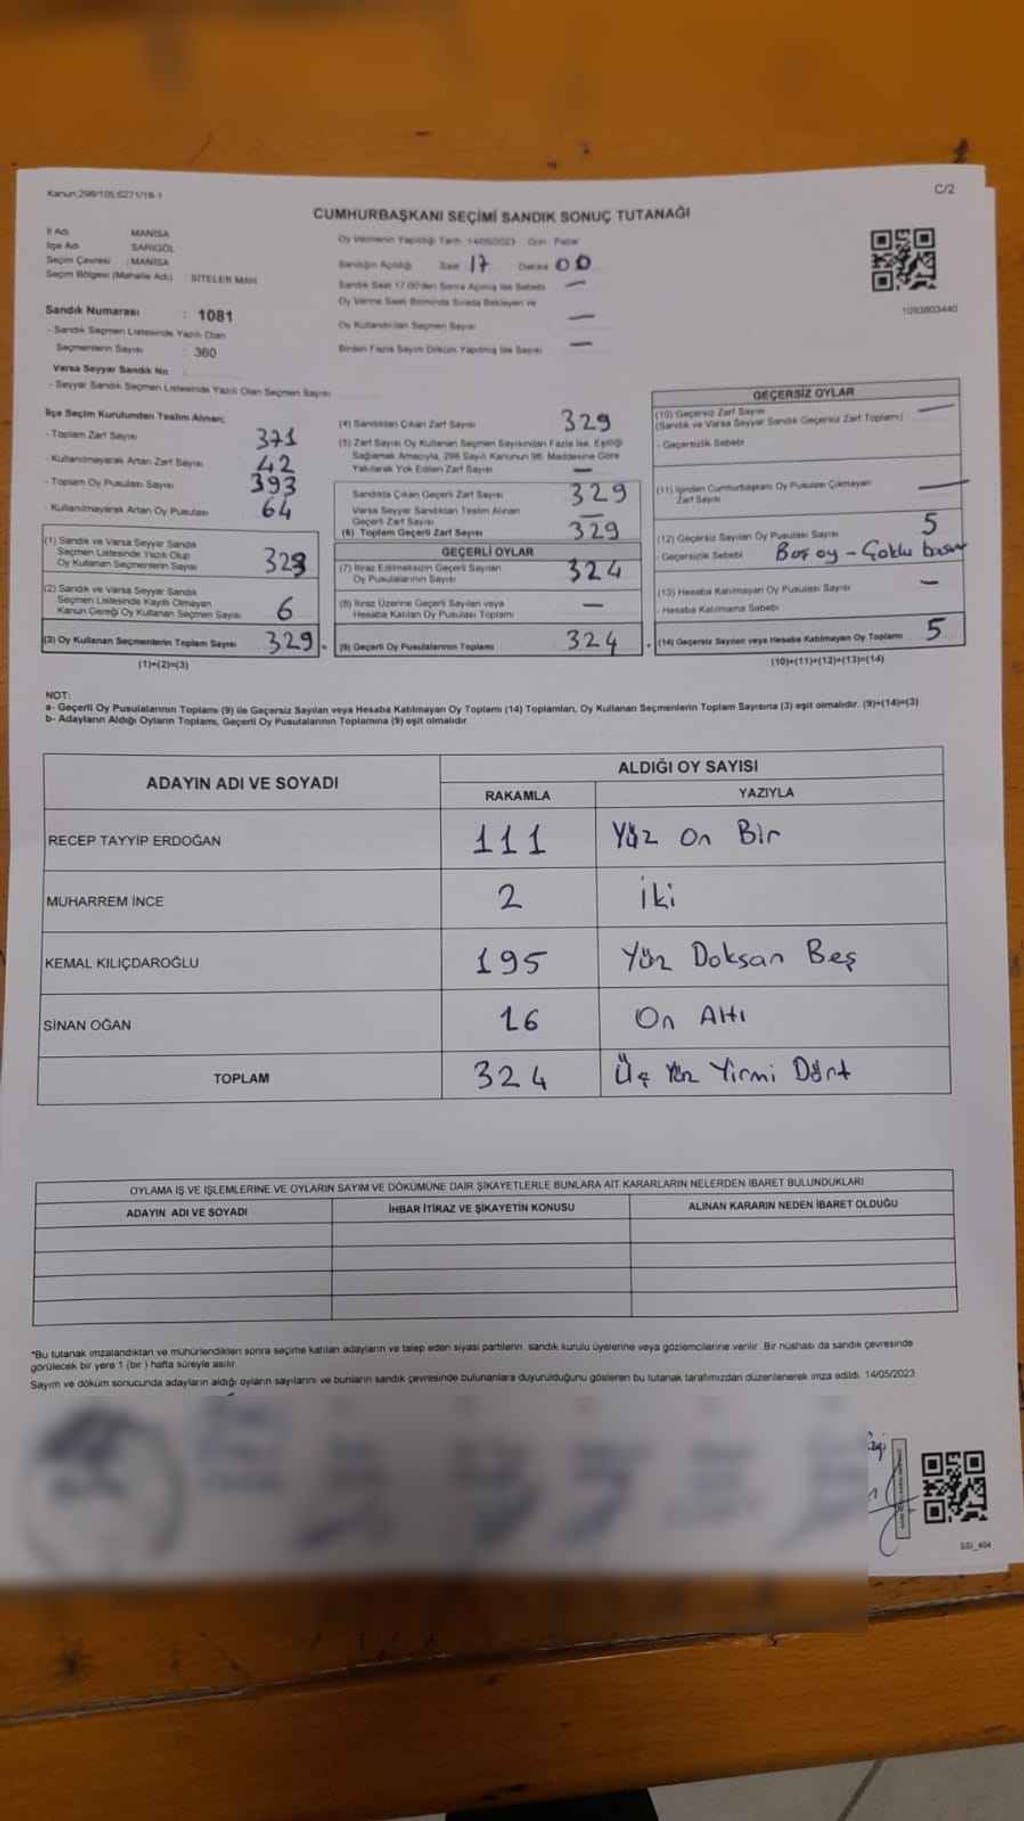 Kanun:298/105,6271/18-1
C/2
CUMHURBAŞKANI SEÇİMİ SANDIK SONUÇ TUTANAĞI
İl Adı MANİSA
İlçe Adı SARIGÖL
Seçim Çevresi : MANİSA
Seçim Bölgesi (Mahalle Adı) : SİTELER MAH.
Sandık Numarası : 1081
- Sandık Seçmen Listesinde Yazılı Olan
Seçmenlerin Sayısı : 360
Varsa Seyyar Sandık No
- Seyyar Sandık Seçmen Listesinde Yazılı Olan Seçmen Sayısı
Oy Vermenin Yapıldığı Tarih: 14/05/2023 Gün: Pazar
Sandığın Açıldığı Saat 17 Dakika 00
Sandık Saat 17.00'den Sonra Açılmış İse Sebebi —
Oy Verme Saati Bitiminde Sırada Bekleyen ve
Oy Kullandırılan Seçmen Sayısı —
Birden Fazla Sayım Döküm Yapılmış İse Sayısı —
1093803440
İlçe Seçim Kurulundan Teslim Alınan;
- Toplam Zarf Sayısı 371
- Kullanılmayarak Artan Zarf Sayısı 42
- Toplam Oy Pusulası Sayısı 393
- Kullanılmayarak Artan Oy Pusulası 64
(1) Sandık ve Varsa Seyyar Sandık
Seçmen Listesinde Yazılı Olup
Oy Kullanan Seçmenlerin Sayısı 323
(2) Sandık ve Varsa Seyyar Sandık
Seçmen Listesinde Kayıtlı Olmayan
Kanun Gereği Oy Kullanan Seçmen Sayısı 6
(3) Oy Kullanan Seçmenlerin Toplam Sayısı 329
(1)+(2)=(3)
(4) Sandıktan Çıkan Zarf Sayısı 329
(5) Zarf Sayısı Oy Kullanan Seçmen Sayısından Fazla İse, Eşitliği
Sağlamak Amacıyla, 298 Sayılı Kanunun 98. Maddesine Göre
Yakılarak Yok Edilen Zarf Sayısı —
Sandıkta Çıkan Geçerli Zarf Sayısı 329
Varsa Seyyar Sandıktan Teslim Alınan
Geçerli Zarf Sayısı —
(6) Toplam Geçerli Zarf Sayısı 329
GEÇERLİ OYLAR
(7) İtiraz Edilmeksizin Geçerli Sayılan
Oy Pusulalarının Sayısı 324
(8) İtiraz Üzerine Geçerli Sayılan veya
Hesaba Katılan Oy Pusulası Toplamı —
(9) Geçerli Oy Pusulalarının Toplamı 324
GEÇERSİZ OYLAR
(10) Geçersiz Zarf Sayısı —
(Sandık ve Varsa Seyyar Sandık Geçersiz Zarf Toplamı)
- Geçersizlik Sebebi
(11) İçinden Cumhurbaşkanı Oy Pusulası Çıkmayan
Zarf Sayısı —
(12) Geçersiz Sayılan Oy Pusulası Sayısı 5
- Geçersizlik Sebebi Boş oy - Çoklu basur
(13) Hesaba Katılmayan Oy Pusulası Sayısı —
- Hesaba Katılmama Sebebi
(14) Geçersiz Sayılan veya Hesaba Katılmayan Oy Toplamı 5
(10)+(11)+(12)+(13)=(14)
NOT:
a- Geçerli Oy Pusulalarının Toplamı (9) ile Geçersiz Sayılan veya Hesaba Katılmayan Oy Toplamı (14) Toplamları, Oy Kullanan Seçmenlerin Toplam Sayısına (3) eşit olmalıdır. (9)+(14)=(3)
b- Adayların Aldığı Oyların Toplamı, Geçerli Oy Pusulalarının Toplamına (9) eşit olmalıdır.
ADAYIN ADI VE SOYADI
ALDIĞI OY SAYISI
RAKAMLA YAZIYLA
RECEP TAYYİP ERDOĞAN 111 Yüz On Bir
MUHARREM İNCE 2 İki
KEMAL KILIÇDAROĞLU 195 Yüz Doksan Beş
SİNAN OĞAN 16 On Altı
TOPLAM 324 Üç Yüz Yirmi Dört
OYLAMA İŞ VE İŞLEMLERİNE VE OYLARIN SAYIM VE DÖKÜMÜNE DAİR ŞİKAYETLERLE BUNLARA AİT KARARLARIN NELERDEN İBARET BULUNDUKLARI
ADAYIN ADI VE SOYADI İHBAR İTİRAZ VE ŞİKAYETİN KONUSU ALINAN KARARIN NEDEN İBARET OLDUĞU
*Bu tutanak imzalandıktan ve mühürlendikten sonra seçime katılan adayların ve talep eden siyasi partilerin, sandık kurulu üyelerine veya gözlemcilerine verilir. Bir nüshası da sandık çevresinde
görülecek bir yere 1 (bir ) hafta süreyle asılır.
Sayım ve döküm sonucunda adayların aldığı oyların sayılarını ve bunların sandık çevresinde bulunanlara duyurulduğunu gösteren bu tutanak tarafımızdan düzenlenerek imza edildi. 14/05/2023